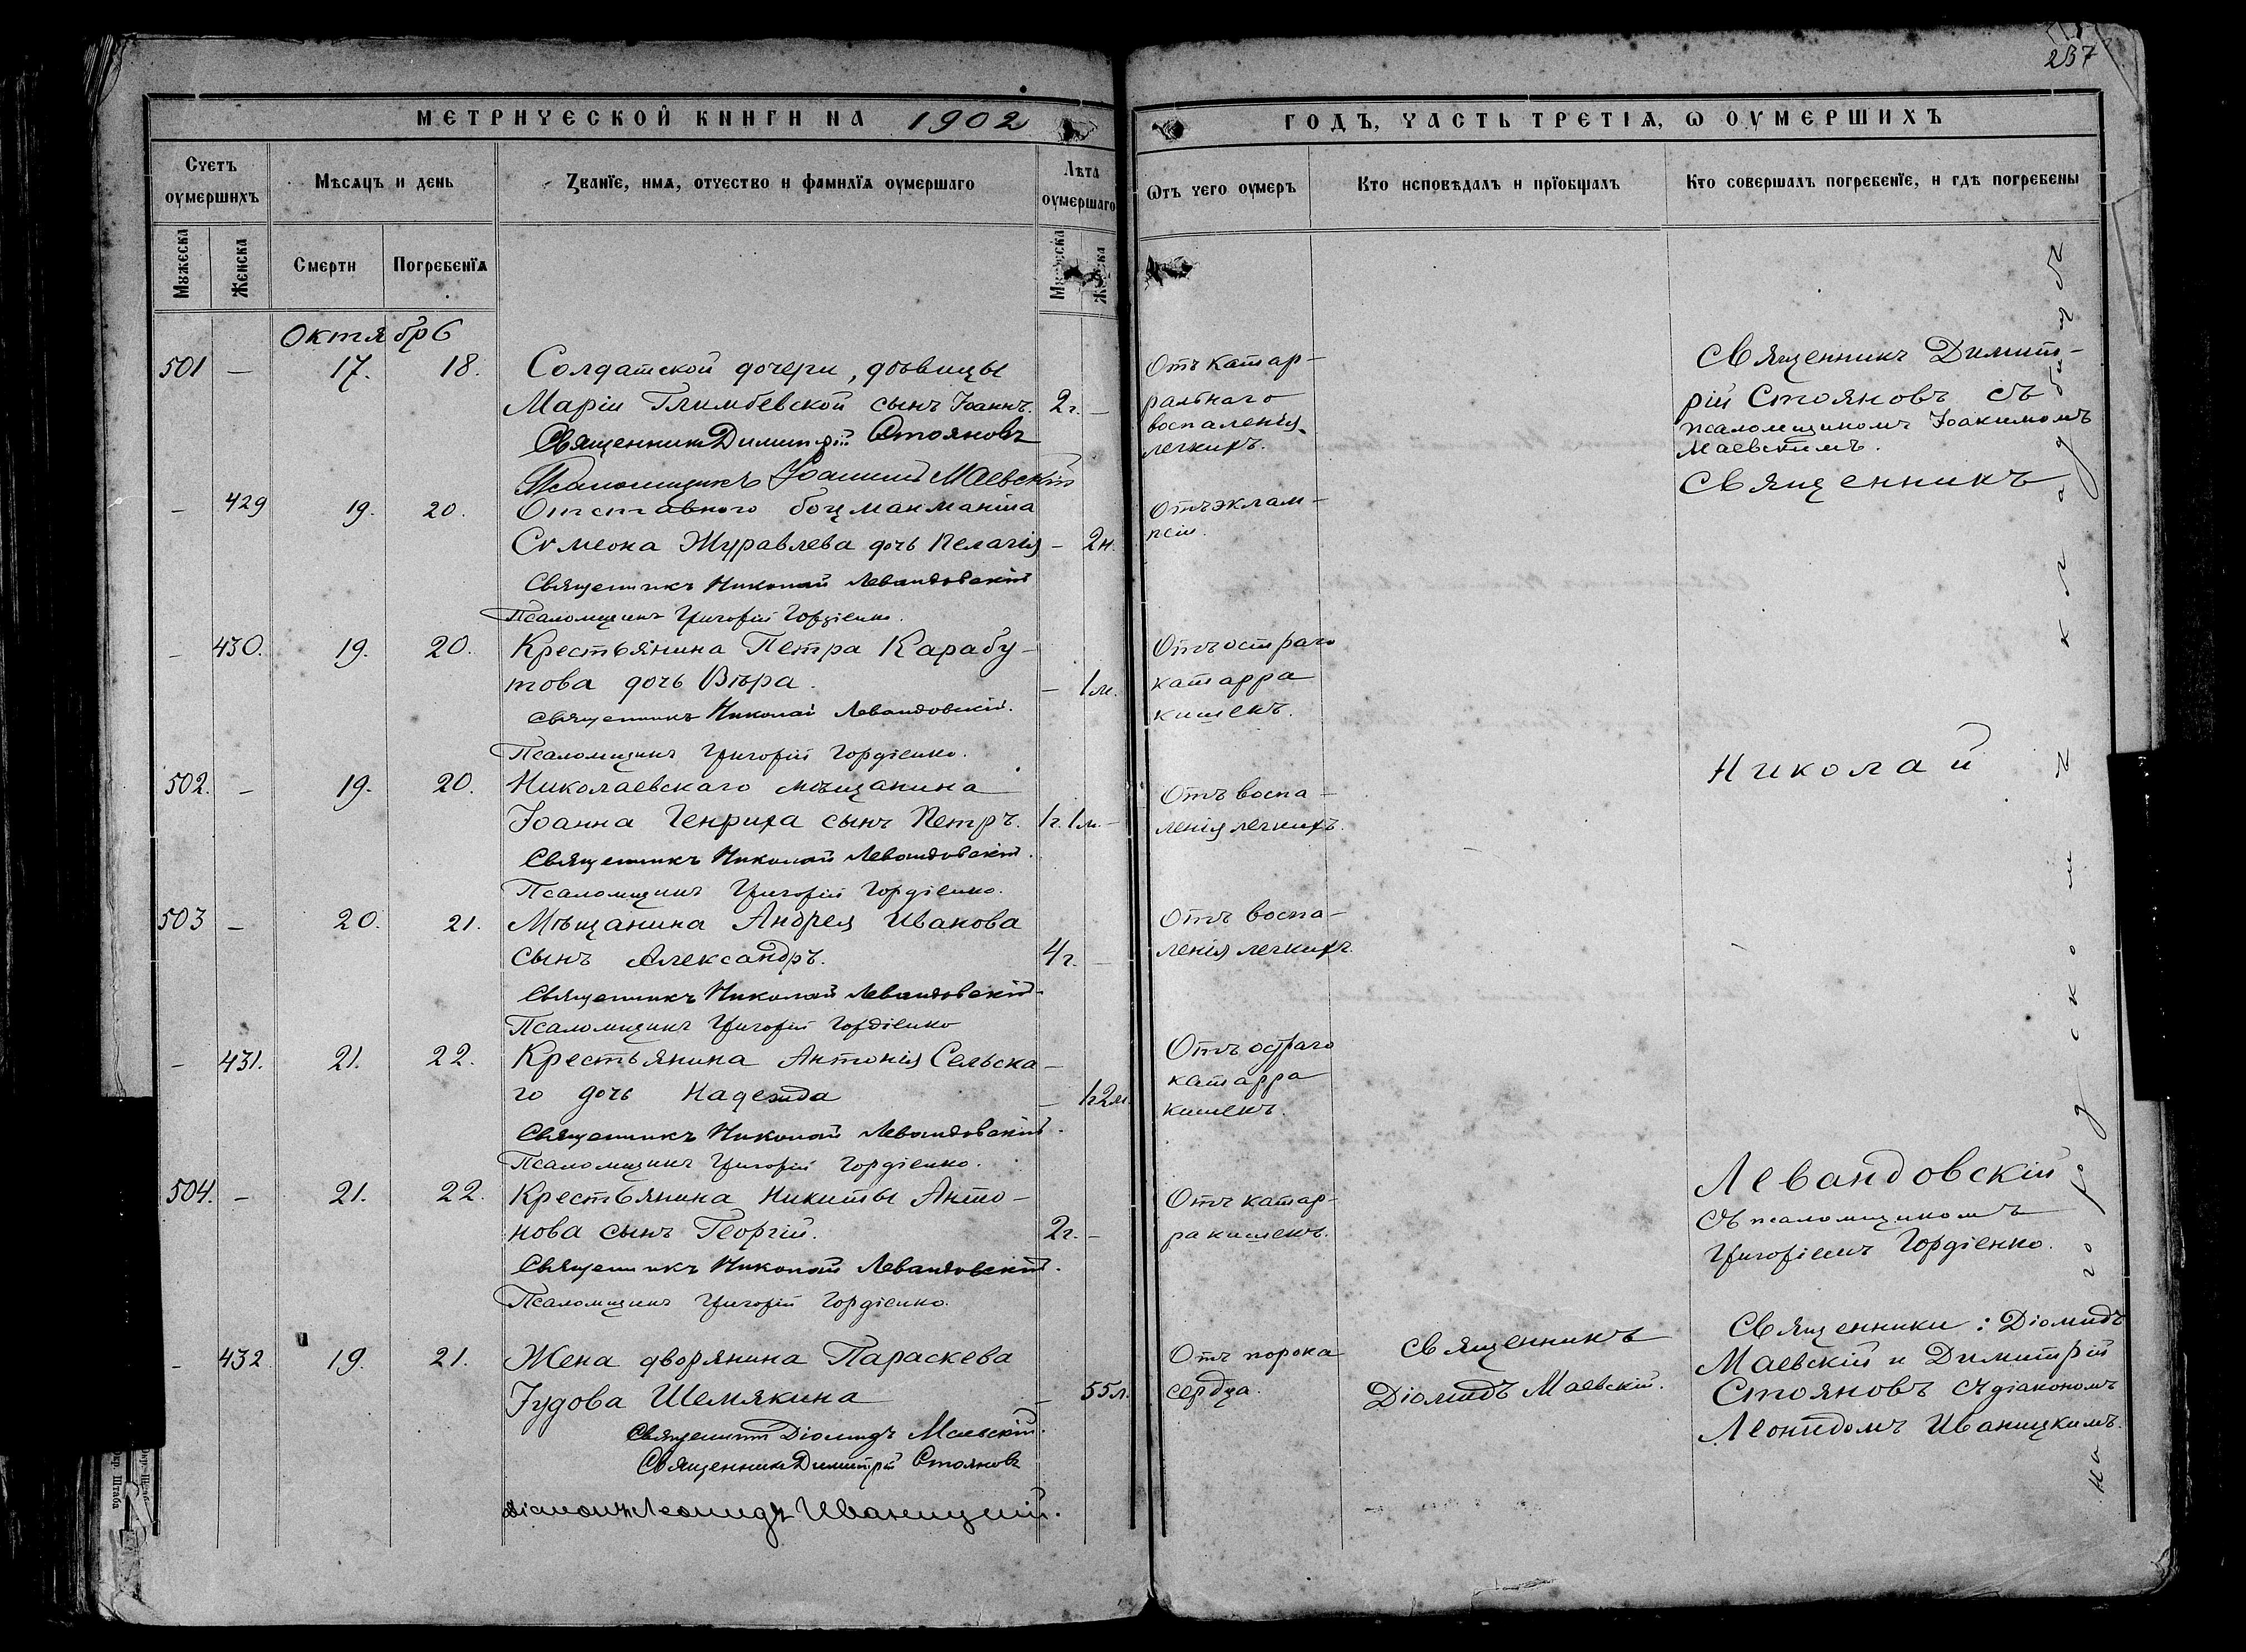 237
МЕТРИЧЕСКОЙ КНИГИ НА 1902
ГОДЪ, ЧАСТЬ ТРЕТІѦ, Ѡ ОУМЕРШИХЪ
Счетъ оумершихъ
Мѣсяцъ и день
Званїе, имѧ, отчество и фамилїѧ оумершаго
Лѣта оумершаго
Ѿтъ чего оумеръ
Кто исповѣдалъ и прїобщалъ
Кто совершалъ погребенїе, и гдѣ погребены
Мужеска
Женска
Смерти
Погребенїѧ
Мужеска
Женска
Октябрь
501 — 17. 18. Солдатской дочери, дѣвицы
Маріи Глимбевской сынъ Іоаннъ. 2г. —
Священникъ Димитрій Стояновъ
Псаломщикъ Іоакимъ Маевскій
Отъ катар-
ральнаго
воспаленія
легкихъ.
Священникъ Димит-
рій Стояновъ съ
псаломщикомъ Іоакимомъ
Маевскимъ.
— 429 19. 20. Отставного боцманмата
Сѵмеона Журавлева дочь Пелагія — 2н.
Священникъ Николай Левандовскій
Псаломщикъ Григорій Гордіенко.
Отъ эклам-
псіи.
Священникъ
— 430. 19. 20. Крестьянина Петра Карабу-
това дочь Вѣра. — 1м.
Священникъ Николай Левандовскій.
Псаломщикъ Григорій Гордіенко.
Отъ остраго
катарра
кишекъ.
502. — 19. 20. Николаевскаго мѣщанина
Іоанна Генриха сынъ Петръ. 1г. 1м. —
Священникъ Николай Левандовскій.
Псаломщикъ Григорій Гордіенко.
Отъ воспа-
ленія легкихъ.
Николай
503 — 20. 21. Мѣщанина Андрея Иванова
сынъ Александръ. 4г. —
Священникъ Николай Левандовскій
Псаломщикъ Григорій Гордіенко
Отъ воспа-
ленія легкихъ.
— 431. 21. 22. Крестьянина Антонія Сельска-
го дочь Надежда — 1г2м.
Священникъ Николай Левандовскій.
Псаломщикъ Григорій Гордіенко.
Отъ остраго
катарра
кишекъ.
504. — 21. 22. Крестьянина Никиты Анто-
нова сынъ Георгій. 2г. —
Священникъ Николай Левандовскій.
Псаломщикъ Григорій Гордіенко.
Отъ катар-
ра кишекъ.
Левандовскій
съ псаломщикомъ
Григоріемъ Гордіенко.
— 432 19. 21. Жена дворянина Параскева
Іудова Шемякина — 55л.
Священникъ Діомидъ Маевскій.
Священникъ Димитрій Стояновъ
Діаконъ Леонидъ Иваницкій.
Отъ порока
сердца.
Священникъ
Діомидъ Маевскій.
Священники: Діомидъ
Маевскій и Димитрій
Стояновъ съ діакономъ
Леонидомъ Иваницкимъ.
на городскомъ кладбищѣ